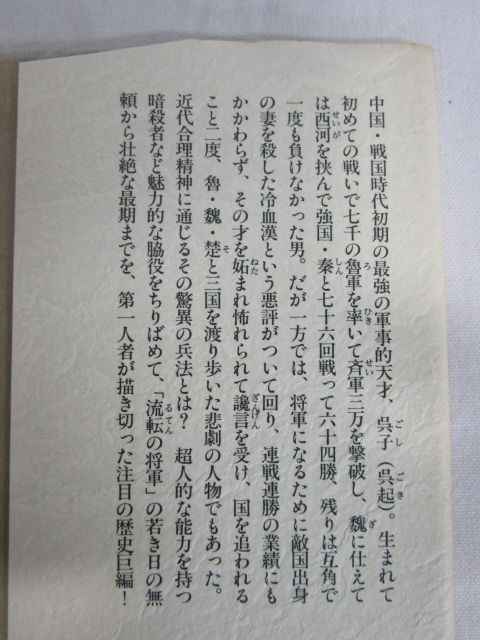 中国・戦国時代初期の最強の軍事的天才、呉子（呉起）。生まれて
初めての戦いで七千の魯軍を率いて斉軍三万を撃破し、魏に仕えて
は西河を挟んで強国・秦と七十六回戦って六十四勝、残りは互角で
一度も負けなかった男。だが一方では、将軍になるために敵国出身
の妻を殺した冷血漢という悪評がついて回り、連戦連勝の業績にも
かかわらず、その才を妬まれ怖れられて讒言を受け、国を追われる
こと二度、魯・魏・楚と三国を渡り歩いた悲劇の人物でもあった。
近代合理精神に通じるその驚異の兵法とは？　超人的な能力を持つ
暗殺者など魅力的な脇役をちりばめて、「流転の将軍」の若き日の無
頼から壮絶な最期までを、第一人者が描き切った注目の歴史巨編！